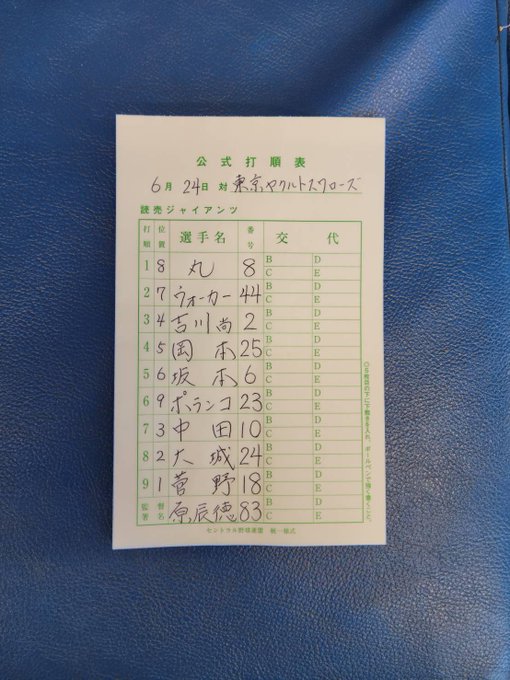 公式打順表
6月 24日 対 東京ヤクルトスワローズ
読売ジャイアンツ
打順 位置 選手名 番号 交代
1 8 丸 8 B D C E
2 7 ウォーカー 44 B D C E
3 4 吉川尚 2 B D C E
4 5 岡本 25 B D C E
5 6 坂本 6 B D C E
6 9 ポランコ 23 B D C E
7 3 中田 10 B D C E
8 2 大城 24 B D C E
9 1 菅野 18 B D C E
監督署名 原辰徳 83 B D C E
○5枚目の下に下敷きを入れ、ボールペンで強く書くこと。
セントラル野球連盟 統一様式